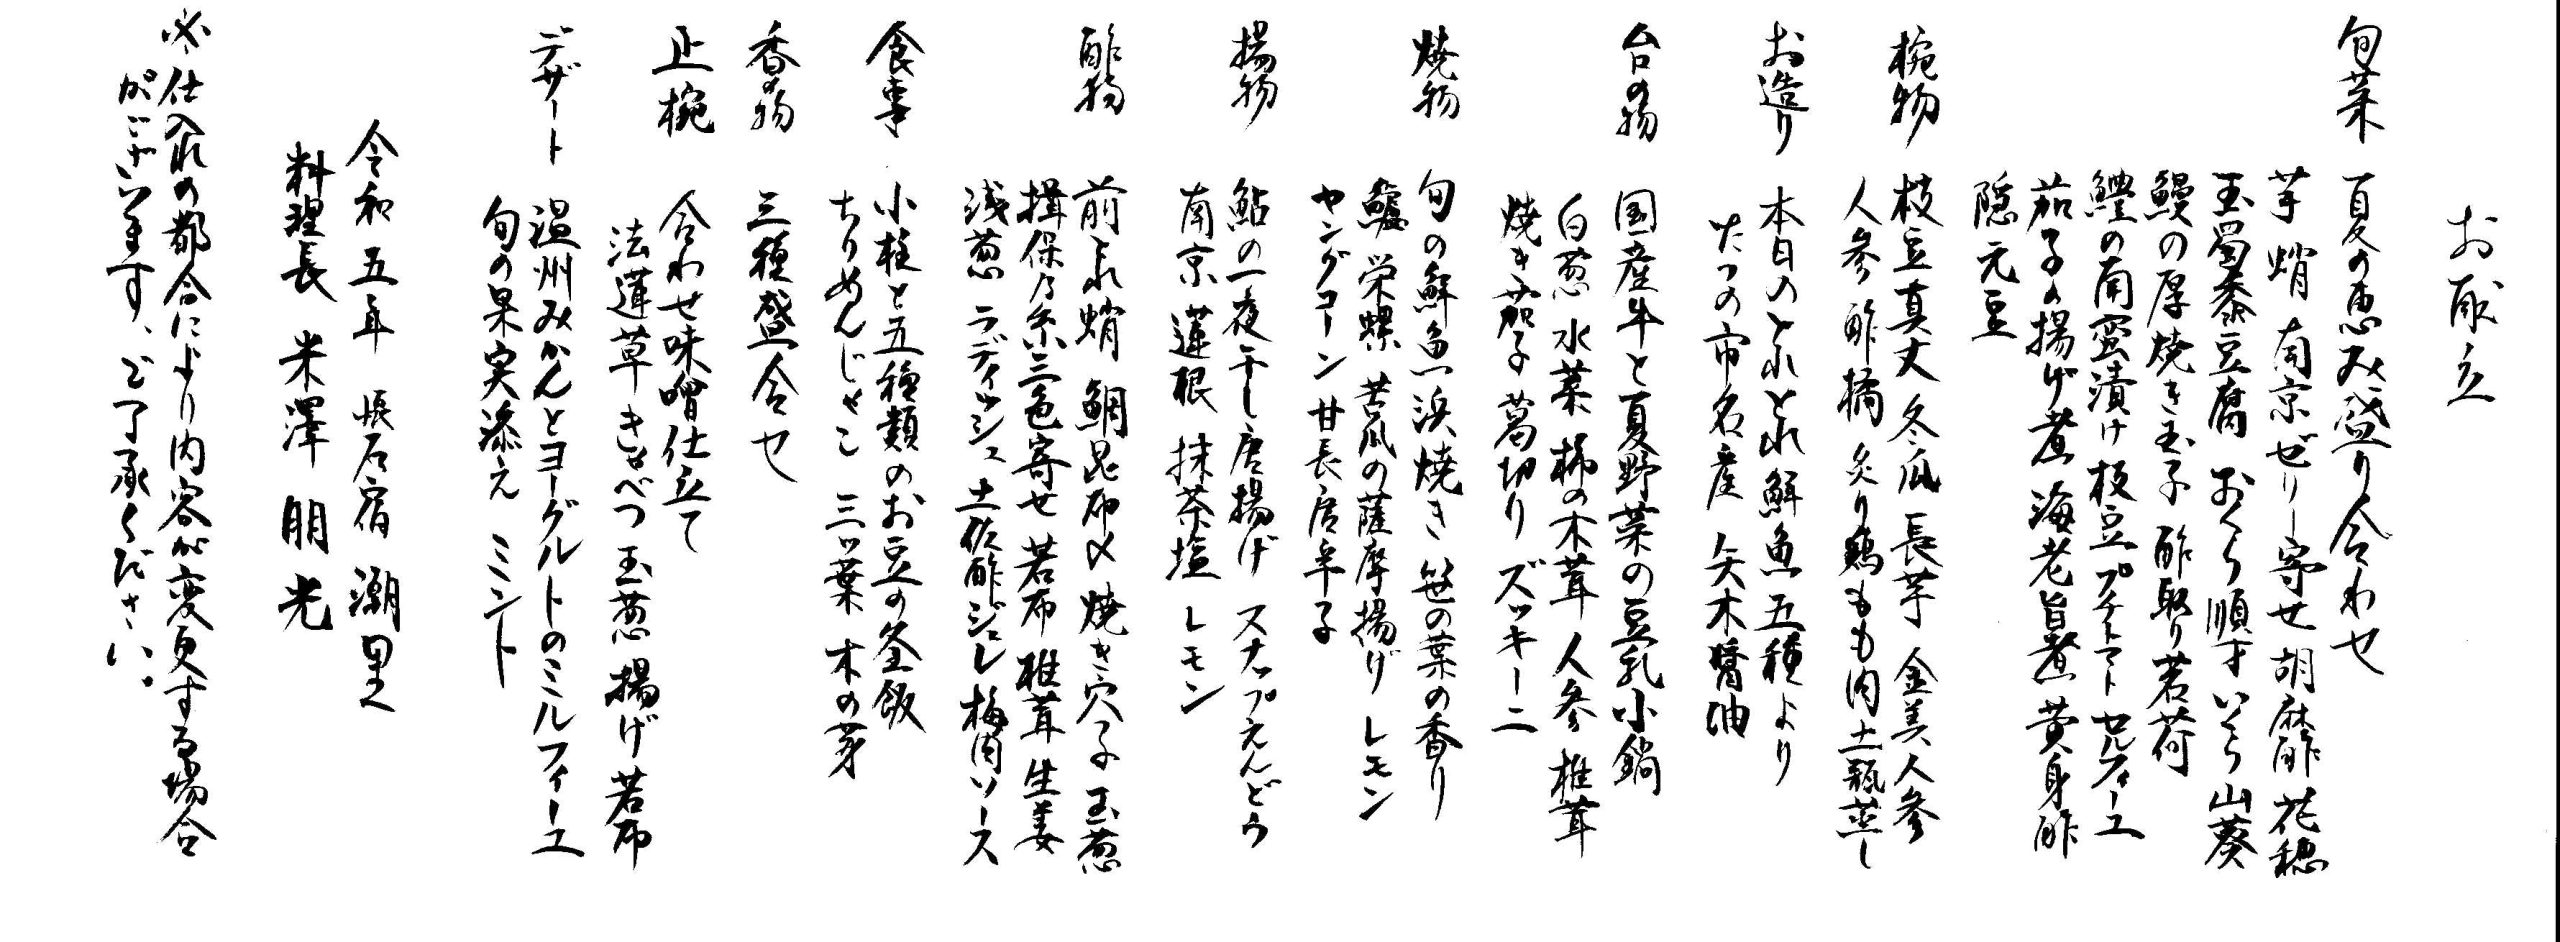 お献立
旬菜 夏の恵み盛り合わせ
芋蛸南京ゼリー寄せ 胡麻酢 花穂
玉蜀黍豆腐 おくら 順才 いくら 山葵
鰻の厚焼き玉子 酢取り茗荷
鱧の南蛮漬け 枝豆 プチトマト セルフィーユ
茄子の揚げ煮 海老旨煮 黄身酢
隠元豆
椀物 枝豆真丈 冬瓜 長芋 金美人参
人参 酢橘 炙り鶏もも肉土瓶蒸し
お造り 本日のとれとれ鮮魚五種より
たつの市名産 矢木醤油
台の物 国産牛と夏野菜の豆乳小鍋
白葱 水菜 榎の木茸 人参 椎茸
焼き茄子 葛切り ズッキーニ
焼物 旬の鮮魚 浜焼き 笹の葉の香り
鱸 栄螺 苦瓜の薩摩揚げ レモン
ヤングコーン 甘長唐辛子
揚物 鮎の一夜干し唐揚げ スナップえんどう
南京 蓮根 抹茶塩 レモン
酢物 前どれ蛸 鯛昆布〆 焼き穴子 玉葱
揖保乃糸三色寄せ 若布 椎茸 生姜
浅葱 ラディッシュ 土佐酢ジュレ 梅肉ソース
食事 小柱と五種類のお豆の釜飯
ちりめんじゃこ 三ッ葉 木の芽
香の物 三種盛合せ
止椀 合わせ味噌仕立て
法蓮草 きゃべつ 玉葱 揚げ 若布
デザート 温州みかんとヨーグルトのミルフィーユ
旬の果実添え ミント
令和五年 姫石宿 潮里
料理長 米澤 朋光
※仕入れの都合により内容が変更する場合
がございます、ご了承ください。